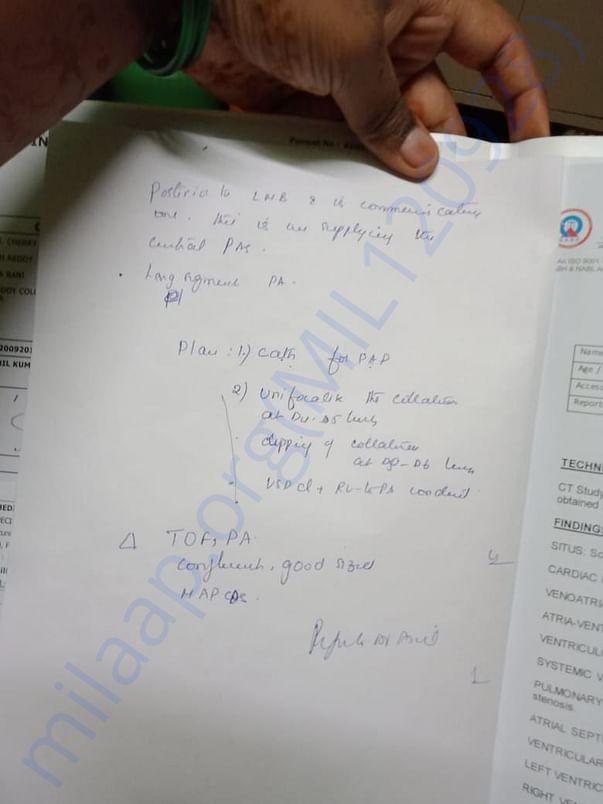 Format No :
Posterior to LMB & is communicating
one. This is supplying the
central PAs.
. Long segment PA.
Plan : 1.) cath for PAP
2) Unifocalise the collaterals
at D4-D5 level
clipping of collaterals
at D5-D6 level
VSD cl + RV-to-PA conduit.
Δ TOF, PA.
confluent, good sized
MAPCAs.
CHERRY
REDDY
RANI
DDY COL
2009201
IL KUM
An ISO 9001
BH & NABL A
Name
Age /
Access
Report
TECHN
CT Study
obtained
FINDING
SITUS: So
CARDIAC
VENOATRI
ATRIA-VENT
VENTRICUL
SYSTEMIC V
PULMONARY
stenosis.
ATRIAL SEPT
VENTRICULAR
LEFT VENTRIC
RIGHT VEN
milaap.org(MIL1209